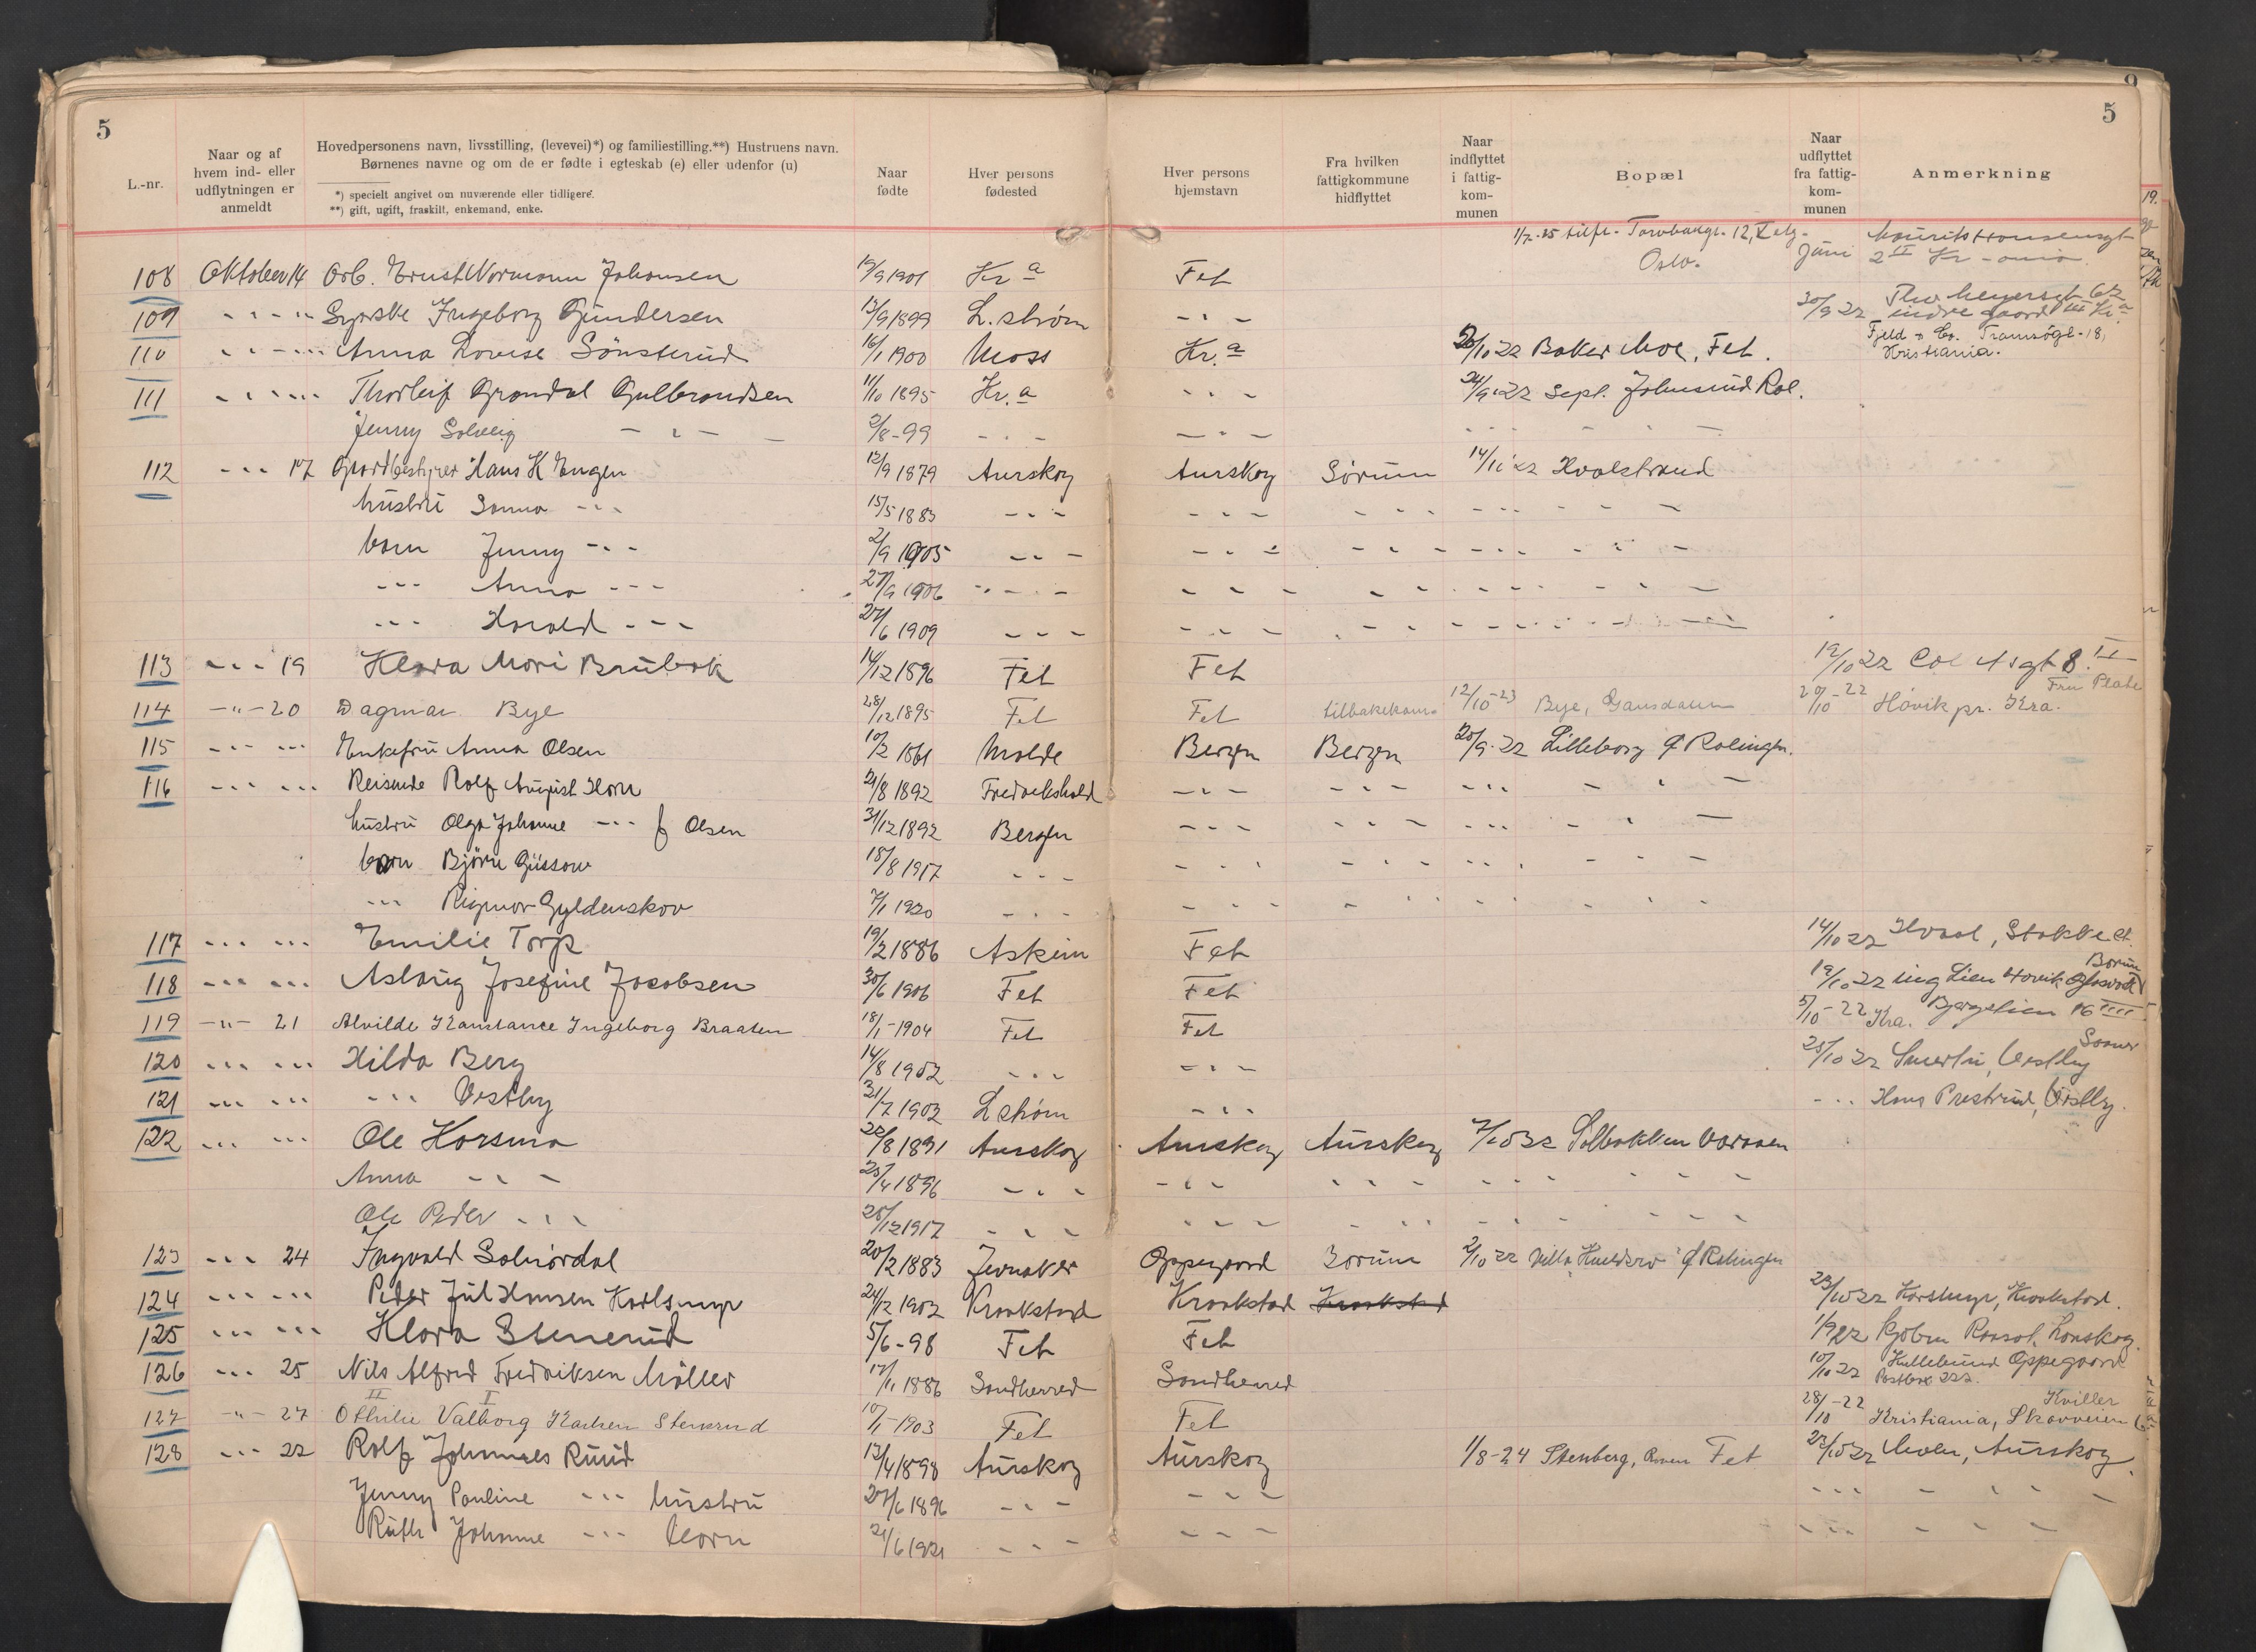 5
5
9
L.-nr.
Naar og af hvem ind- eller udflytningen er anmeldt
Hovedpersonens navn, livsstilling, (levevei)*) og familiestilling.**) Hustruens navn.
Børnenes navne og om de er fødte i egteskab (e) eller udenfor (u)
*) specielt angivet om nuværende eller tidligere.
**) gift, ugift, fraskilt, enkemand, enke.
Naar fødte
Hver persons fødested
Hver persons hjemstavn
Fra hvilken fattigkommune hidflyttet
Naar indflyttet i fattigkommunen
Bopæl
Naar udflyttet fra fattigkommunen
Anmerkning
1/2-25 tilfl. Torvbakgt. 12, Oslo.
108 Oktober 14 Arb. Ernst Normann Johansen 19/9 1901 Kr a Fet Juni 2 II Kr-ania
109 " - " Syerske Ingeborg Gundersen 13/9 1899 L.strøm - " - 30/9 22 Thv. Meyersgt 62 indre gaard III Kr a
110 " - " Anna Lovise Sønsterud 16/1 1900 Moss Kr. a 20/10 22 Baker Moe, Fet. Fjeld & Co. Tromsøgt-18, Kristiania.
111 " - " Thorleif Grøndal Gulbrandsen 11/10 1895 Kr. a - - - 24/9 22 Sept. Johnsrud Ræl.
Jenny Solveig - " - 2/8-99 - - - - - -
112 - " - 17 Gaardbestyrer Hans K Engen 12/9 1879 Aurskog Aurskog Sørum 14/10 22 Hvalstrand
hustru Sanna - " - 15/5 1883 - " - - - - - - - - - -
barn Jenny - " - 2/9 1905 - " - - - - - - - - - -
" - " Anna - " - 27/9 1906 - " - - - - - - - - - -
" - " Harald - " - 27/6 1909 - - - - - - - - - - - -
113 - " - 19 Klara Mari Brubak 14/12 1896 Fet Fet 19/10 22 8 II
114 - " - 20 Dagmar Bye 28/12 1895 Fet Fet tilbakekom. 12/10-23 Bye, Gansdalen 20/10-22 Høvik pr. Kra. Fru Plate
115 - " - " Enkefru Anna Olsen 10/2 1861 Molde Bergen Bergen 20/9-22 Lilleborg Rælingen.
116 - " - " Reisende Rolf August Horn 21/8 1892 Fredrikshald - " - - - - - - - - - -
hustru Olga Johanne - " - f Olsen 31/12 1892 Bergen - - - - - - - - - - - -
barn Bjørn Güssow 18/8 1917 - - - - - - - - - - - -
" - " Rigmor Gyldenskov 7/1 1920 - - - - - - - - - - - -
117 - " - " Emilie Torp 19/2 1886 Askim Fet 14/10 22 Hvaal, Stokke st.
118 - " - " Aslaug Josefine Jacobsen 30/6 1906 Fet Fet 19/10 22 ing Lien Høvik Bærum
119 - " - 21 Alvilde Konstance Ingeborg Braaten 18/1-1904 Fet Fet 5/10-22 Kra. Bjergelien 16 IIII
120 - " - " Hilda Berg 14/8 1902 - - - - " - 25/10 22 Smertu, Vestby Sooner
121 - " - " - " - Vestby 31/7 1902 L strøm - " - - " - Hans Prestrud, Vestby.
122 - " - " Ole Korsmo 22/8 1891 Aurskog Aurskog Aurskog 7/10 22 Solbakken Varaaen
Anna - " - 25/4 1896 - - - - " - - - - - - - - - -
Ole Peder - " - 25/12 1917 - - - - - - - - - - - -
123 - " - 24 Ingvald Solnørdal 20/2 1883 Jevnaker Oppegaard Bærum 2/10 22 Villa Rælingen
124 - " - " Peder Jul Hansen Karlsmyr 24/12 1902 Kraakstad Kraakstad Kraakstad 23/10 22 Karlsmyr, Kraakstad.
125 - " - " Klara Stenerud 5/6-98 Fet Fet 1/9 22 kjøbm Raasok, Lørnskog.
126 - " - 25 Nils Alfred Fredriksen Møller 17/11 1886 Sandherred Sandherred 10/10 22 Kullebund Oppegaard Postbox 222.
II I
127 - " - 27 Othilie Valborg Karlsen Stenerud 10/1-1903 Fet Fet 28/10-22 Kristiania, Skovveien 6. Kviller
128 - " - 22 Rolf Johannes Ruud 13/4 1898 Aurskog Aurskog 1/8-24 Stenberg, Roven Fet 23/10 22 Moen, Aurskog.
Jenny Pauline - " - hustru 27/6 1896 - - - - - - - " - - " " -
Ruth Johanne - " - barn 21/6 1921 - - - - - - - " - - - -